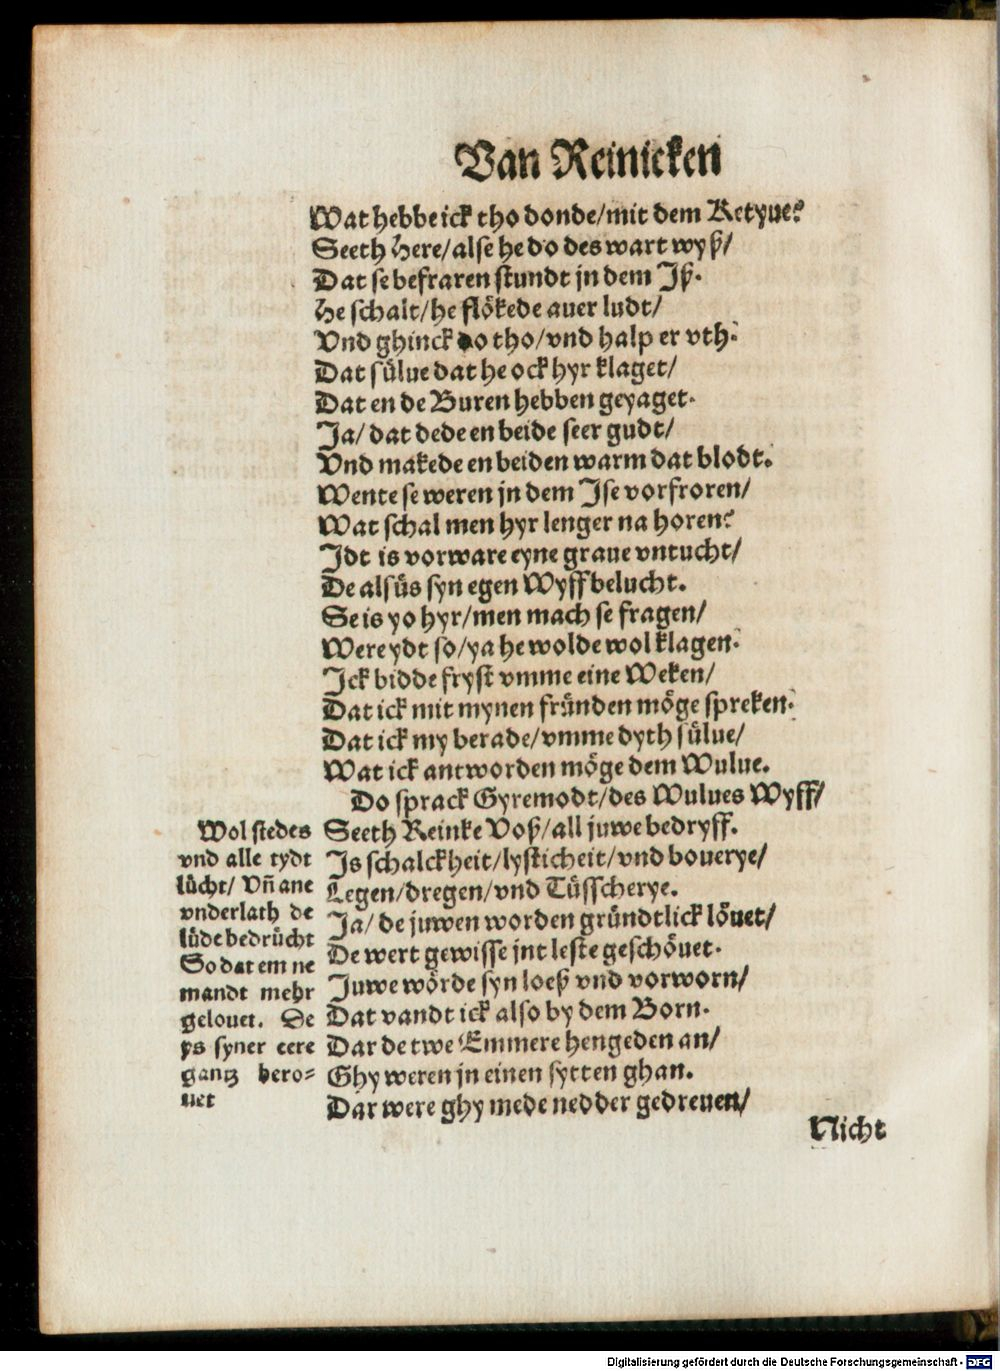 Van Reinicken
Wat hebbe ick tho donde/mit dem Ketyue?
Seeth Here/alse he do des wart wyß/
Dat se befraren stundt jn dem Jß.
He schalt/he flökede auer ludt/
Vnd ghinck do tho/vnd halp er vth.
Dat sülue dat he ock hyr klaget/
Dat en de Buren hebben geyaget.
Ja/ dat dede en beide seer gudt/
Vnd makede en beiden warm dat blodt.
Wente se weren jn dem Jse vorfroren/
Wat schal men hyr lenger na horen?
Jdt is vorware eyne graue vntucht/
De alsüs syn egen Wyff belucht.
Se is yo hyr/men mach se fragen/
Were ydt so/ya he wolde wol klagen.
Jck bidde fryst vmme eine Weken/
Dat ick mit mynen fründen möge spreken.
Dat ick my berade/vmme dyth sülue/
Wat ick antworden möge dem Wulue.
Do sprack Gyremodt/des Wulues Wyff/
Seeth Reinke Voß/all juwe bedryff.
Js schalckheit/lysticheit/vnd bouerye/
Legen/dregen/vnd Tüsscherye.
Ja/ de juwen worden gründtlick löuet/
De wert gewisse jnt leste geschöuet.
Juwe wörde syn loeß vnd vorworn/
Dat vandt ick also by dem Born.
Dar de twe Emmere hengeden an/
Ghy weren jn einen sytten ghan.
Dar were ghy mede nedder gedreuen/
Wol stedes
vnd alle tydt
lücht/ Vñ ane
vnderlath de
lüde bedrücht
So dat em ne
mandt mehr
gelouet. De
ys syner eere
gantz bero=
uet
Nicht
Digitalisierung gefördert durch die Deutsche Forschungsgemeinschaft - DFG